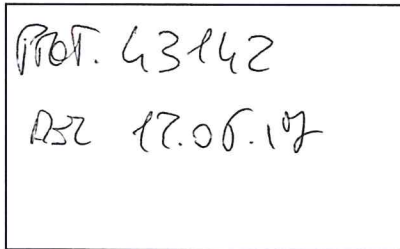 PROT. 43142
DEL 12.06.17